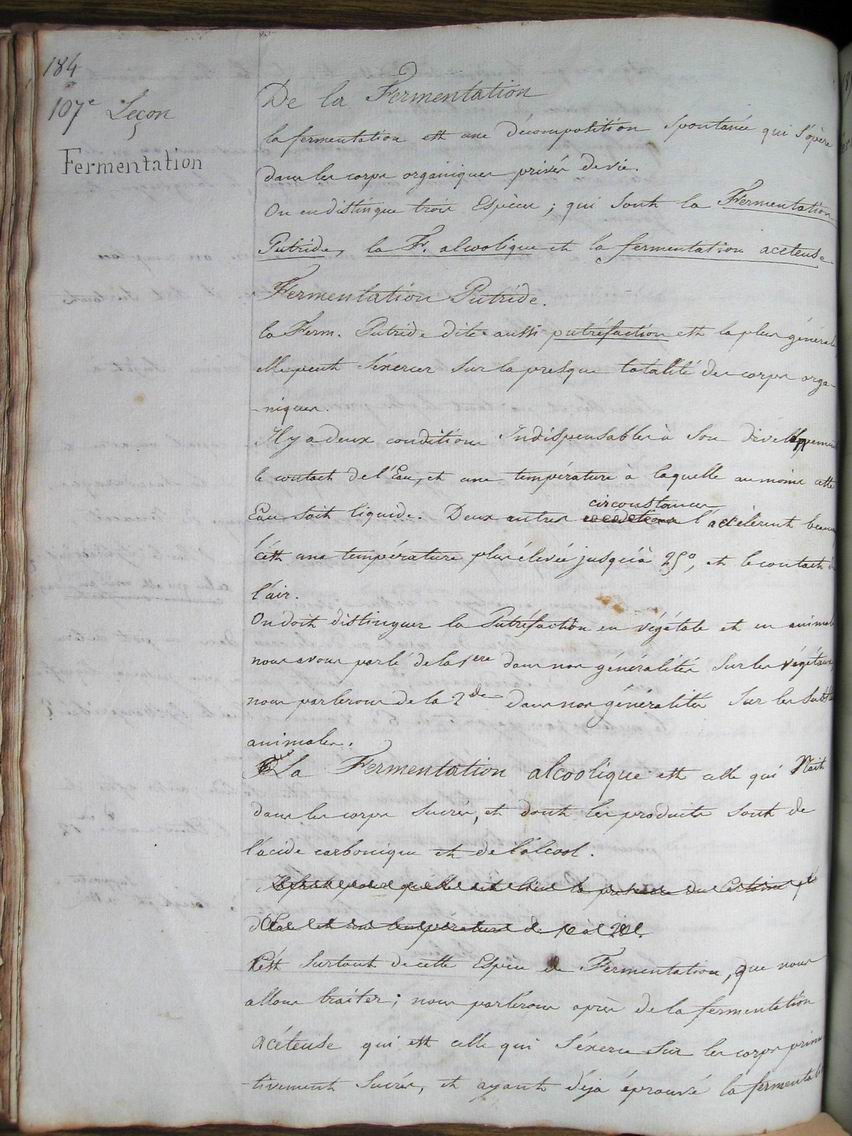 184
107e Leçon
Fermentation
De la Fermentation
la fermentation est une décomposition spontanée qui s'opère
dans les corps organiques privés de vie.
On en distingue trois Espèces ; qui sont la Fermentation
Putride, la F. alcoolique et la fermentation acéteuse
Fermentation Putride.
la Ferm. Putride dite aussi putréfaction est la plus générale
elle peut s'éxercer sur la presque totalité des corps orga-
-niques.
Il y a deux conditions Indispensables à son développement
le contact de l'Eau, et une température à laquelle au moins cette
circonstances
Eau soit liquide. Deux autres l'accélèrent beauc
c'est une température plus élevée jusqu'à 25°, et le contact de
l'air.
On doit distinguer la Putréfaction en végétale et en animale
nous avons parlé de la 1ere dans nos généralités sur les végétaux
nous parlerons de la 2de dans nos généralités sur les subst
animales.
La Fermentation alcoolique est celle qui Nait
dans les corps Sucrés, et dont les produits sont de
l'acide carbonique et de l'alcool.
C'est surtout de cette Espèce de Fermentation, que nous
allons traiter ; nous parlerons après de la fermentation
acéteuse qui est celle qui s'éxerce sur les corps primi
-tivement Sucrés, et ayant déja éprouvé la fermentati